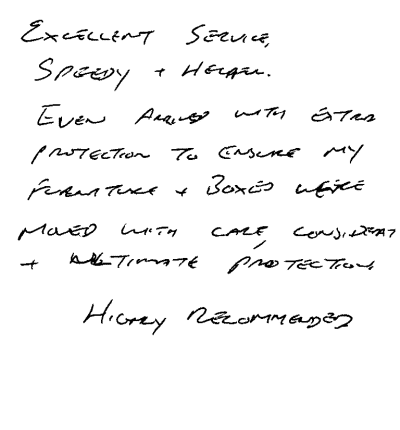 EXCELLENT SERVICE,
SPEEDY + HELPFUL.
EVEN ARRIVED WITH EXTRA
PROTECTION TO ENSURE MY
FURNITURE + BOXES WERE
MOVED WITH CARE, CONSIDERAT
+ ULTIMATE PROTECTION
HIGHLY RECOMMENDED